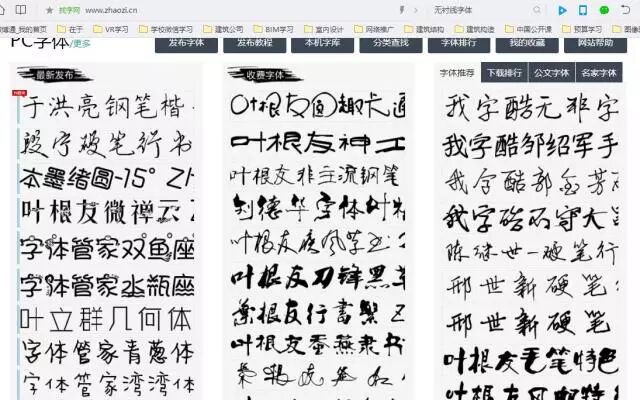 找字网 www.zhaozi.cn
无衬线字体
我的首页 在于 VR学习 学校微信学习 建筑公司 BIM学习 百度 网络推广 建筑结构 建筑构造 中国公开课 预算学习
PC字体/更多
发布字体 发布教程 本机字库 分类查找 字体排行 我的收藏 网站帮助
最新发布
于洪亮钢笔楷
段宁硬笔行书
本墨绪圆-15°
叶根友微禅云
字体管家双鱼座
字体管家水瓶座
叶立群几何体
字体管家青葱体
字体管家湾湾体
收费字体
叶根友圆趣卡通
叶根友神工
叶根友非主流钢笔
刘德华字体叶
叶根友疾风草书
叶根友刀锋黑草
叶根友行书繁
叶根友蚕燕隶书
字体推荐 下载排行 公文字体 名家字体
我字酷无非字
我字酷邹绍军手
我字酷郭金芳
我字酷石守大
陈继世-硬笔行
邢世新硬笔
邢世新硬笔
叶根友毛笔特色
叶根友风帆特